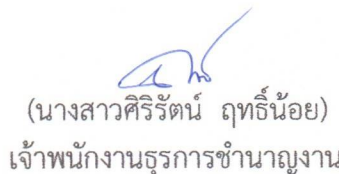 (นางสาวศิริรัตน์ ฤทธิ์น้อย)
เจ้าพนักงานธุรการชำนาญงาน